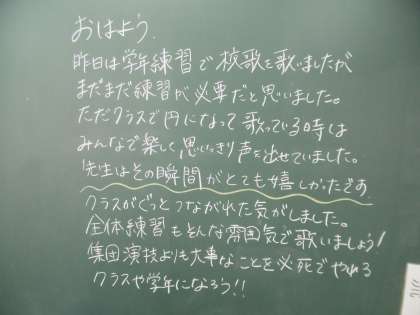 おはよう.
昨日は学年練習で校歌を歌いましたが
まだまだ練習が必要だと思いました。
ただクラスで円になって歌っている時は
みんなで楽しく思いっきり声を出せていました。
先生はその瞬間がとても嬉しかったです
クラスがぐっとつながれた気がしました。
全体練習もそんな雰囲気で歌いましょう!
集団演技よりも大事なことを必死でやれる
クラスや学年になろう!!